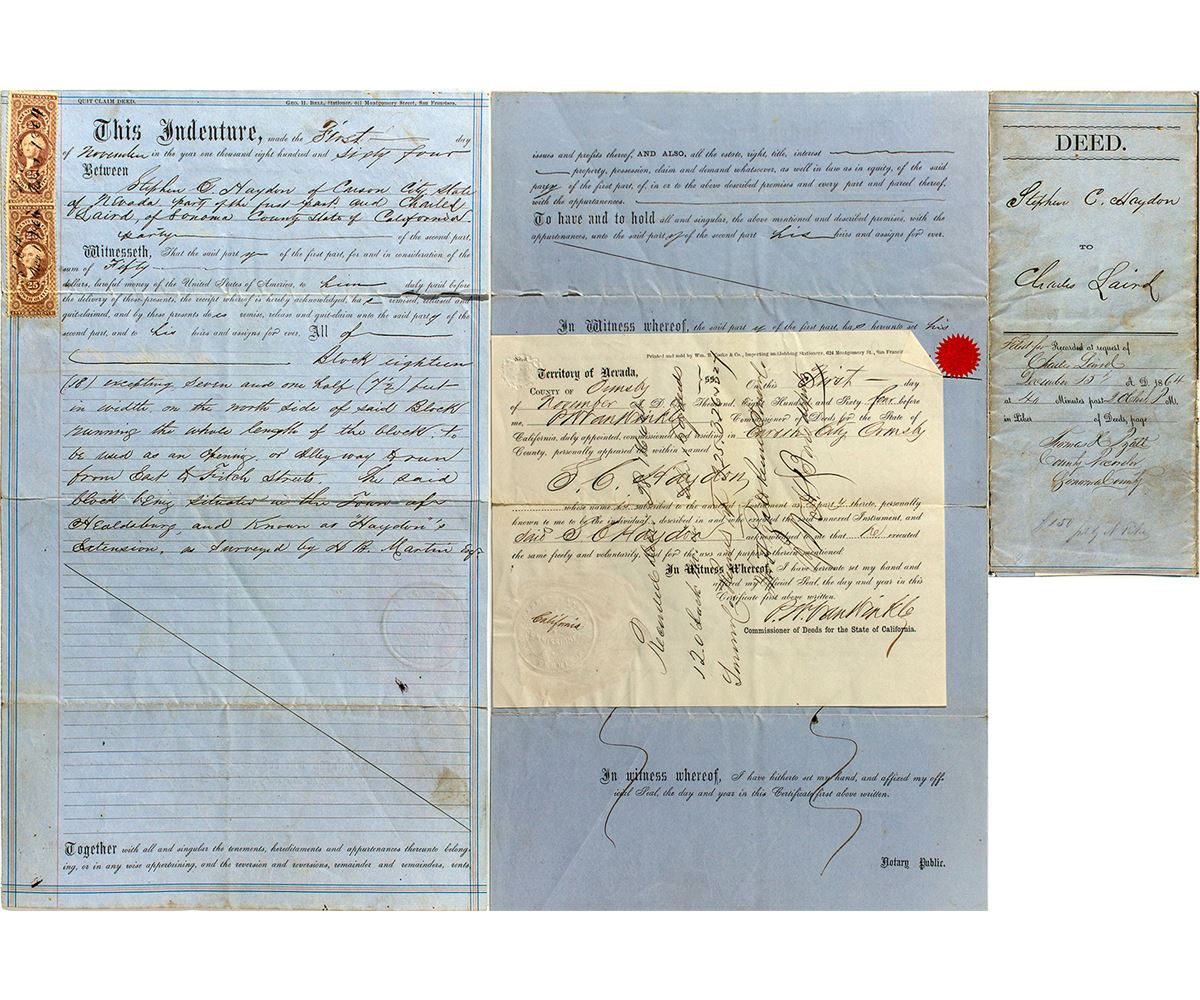 QUIT CLAIM DEED.
Geo. H. Bell, Stationer, 611 Montgomery Street, San Francisco.
This Indenture, made the First day
of November in the year one thousand eight hundred and sixty four
Between
Stephen C Haydon of Carson City State
of Nevada party of the first part and Charles
Laird, of Sonoma County State of California
party of the second part,
Witnesseth, That the said party of the first part, for and in consideration of the
sum of Fifty
dollars, lawful money of the United States of America, to him duly paid before
the delivery of these presents, the receipt whereof is hereby acknowledged, has remised, released and
quit-claimed, and by these presents does remise, release and quit-claim unto the said party of the
second part, and to his heirs and assigns for ever. All of
Block eighteen
(18) excepting Seven and one half (7½) feet
in width, on the north side of said Block
running the whole length of the block. To
be used as an Opening or Alley way to run
from East to Fitch Streets The said
block being situated in the Town of
Healdsburg, and known as Haydon's
Extension, as Surveyed by H B. Martin Esqr
Together with all and singular the tenements, hereditaments and appurtenances thereunto belong-
ing, or in any wise appertaining, and the reversion and reversions, remainder and remainders, rents,
issues and profits thereof, AND ALSO, all the estate, right, title, interest
property, possession, claim and demand whatsoever, as well in law as in equity, of the said
party of the first part, of, in or to the above described premises and every part and parcel thereof,
with the appurtenances.
To have and to hold all and singular, the above mentioned and described premises, with the
appurtenances, unto the said party of the second part his heirs and assigns for ever.
In Witness whereof, the said party of the first part, has hereunto set his
Printed and sold by Wm. B. Cooke & Co., Importing and Jobbing Stationers, 624 Montgomery St., San Francisco
Territory of Nevada,
County of Ormsby ss.
On this First day
of November A. D. One Thousand, Eight Hundred and Sixty Four before
me, P H Van Winkle Commissioner of Deeds for the State of
California, duly appointed, commissioned and residing in Carson City Ormsby
County, personally appeared the within named
S. C. Haydon
whose name is subscribed to the annexed Instrument as a party thereto, personally
known to me to be the individual described in and who executed the said annexed Instrument, and
said S C Haydon acknowledged to me that he executed
the same freely and voluntarily, and for the uses and purposes therein mentioned.
In Witness Whereof, I have hereunto set my hand and
affixed my Official Seal, the day and year in this
Certificate first above written.
P. H. Van Winkle
Commissioner of Deeds for the State of California.
California
In witness whereof, I have hitherto set my hand, and affixed my off-
icial Seal, the day and year in this Certificate first above written.
Notary Public.
DEED.
Stephen C. Haydon
TO
Charles Laird
Filed for Recorded at request of
Charles Laird
December 15th A. D. 1864
at 40 Minutes past 2 O'clock P. M.
in Liber of Deeds page
County Recorder
Sonoma County